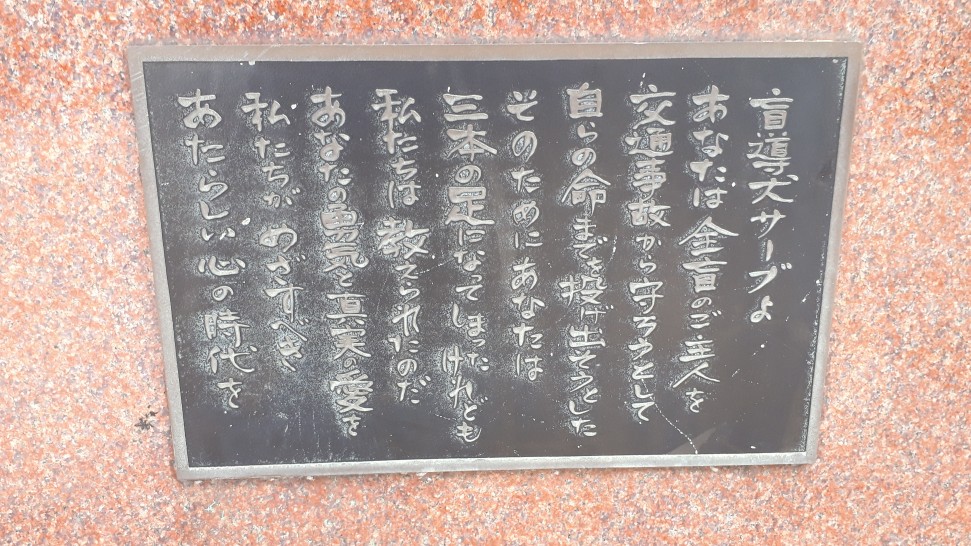 盲導犬サーブよ
あなたは全盲のご主人を
交通事故から守ろうとして
自らの命までを投げ出そうとした
そのためにあなたは
三本の足になってしまったけれども
私たちは教えられたのだ
あなたの勇気を真実の愛を
私たちがめがすべき
あたらしい心の時代を